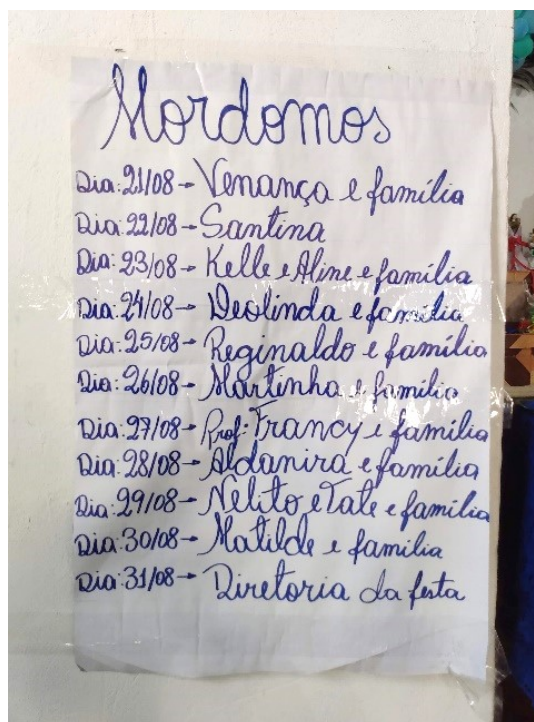 Mordomos
Dia: 21/08 → Venança e família
Dia: 22/08 → Santina
Dia: 23/08 → Kelle e Aline e família
Dia: 24/08 → Deolinda e família
Dia: 25/08 → Reginaldo e família
Dia: 26/08 → Martinha e família
Dia: 27/08 → Prof: Francy e família
Dia: 28/08 → Aldanira e família
Dia: 29/08 → Nelito e Tate e família
Dia: 30/08 → Matilde e família
Dia: 31/08 → Diretoria da festa